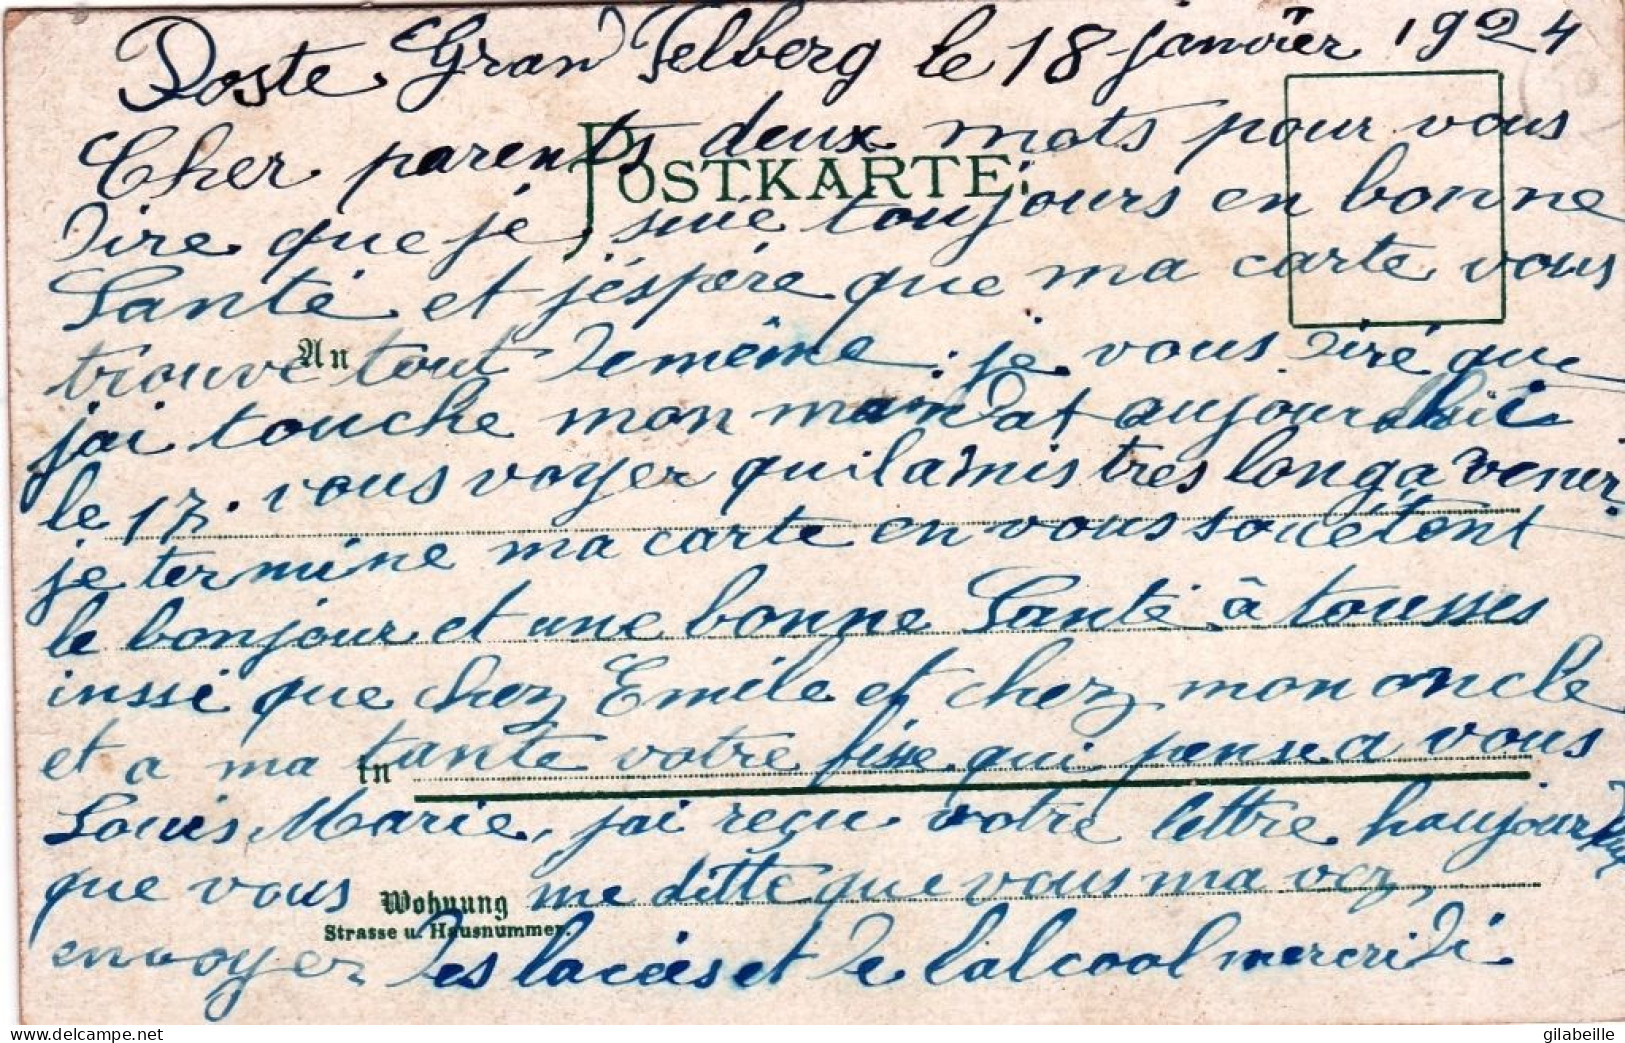 Poste Gran Felberg le 18 janvier 1924
Cher parents deux mots pour vous
POSTKARTE.
dire que je suie toujours en bonne
Santé et j'éspére que ma carte vous
An
trouve tout de même. je vous diré que
j'ai touche mon mandat aujourdhui
le 17. vous voyer quil a mis tres long a venir.
je termine ma carte en vous souétent
le bonjour et une bonne Santé à tousses
inssi que chez Emile et chez mon oncle
et a ma tante votre fisse qui pense a vous
in
Louis Marie, j'ai reçu votre lettre haujourdhui
que vous me ditte que vous ma vez
Wohnung
Strasse u. Hausnummer.
envoyer des lacéts et de l'alcool mercridi
© delcampe.net
gilabeille